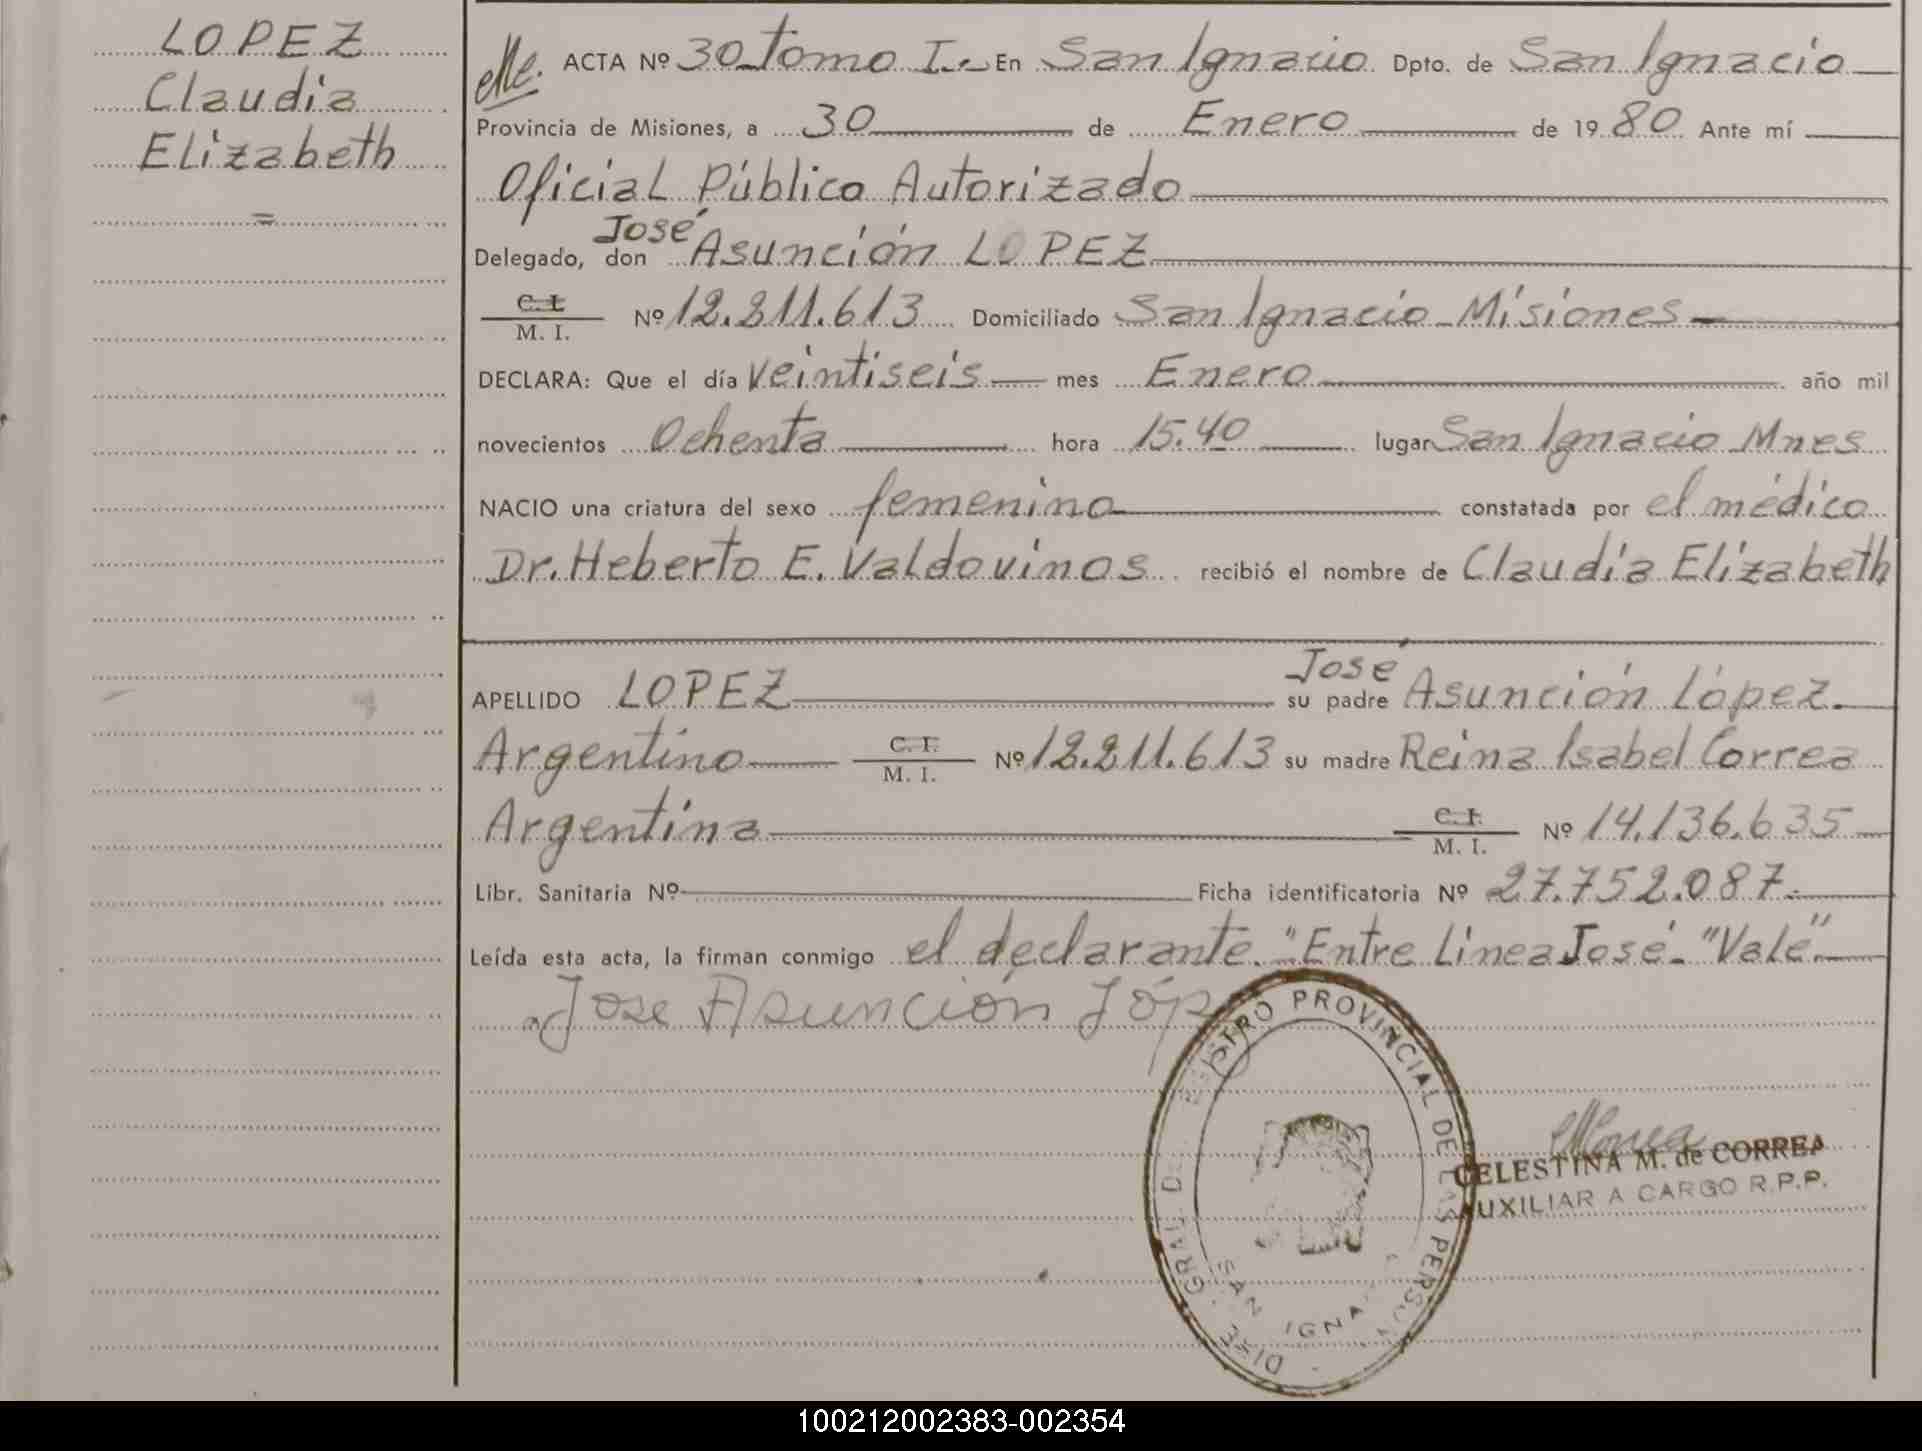 LOPEZ
Claudia
Elizabeth
=
ACTA Nº 30 Tomo I.- En San Ignacio Dpto. de San Ignacio
Provincia de Misiones, a 30 de Enero de 1980 Ante mí
Oficial Público Autorizado
José
Delegado, don Asunción LOPEZ
C. I.
M. I. Nº 12.211.613 Domiciliado San Ignacio Misiones
DECLARA: Que el día veintiseis mes Enero año mil
novecientos Ochenta hora 15.40 lugar San Ignacio Mnes
NACIO una criatura del sexo femenino constatada por el médico
Dr. Heberto E. Valdovinos recibió el nombre de Claudia Elizabeth
José
APELLIDO LOPEZ su padre Asunción López.
Argentino C. I.
M. I. Nº 12.211.613 su madre Reina Isabel Correa
Argentina C. I.
M. I. Nº 14.136.635
Libr. Sanitaria Nº Ficha identificatoria Nº 27.752.087.-
Leída esta acta, la firman conmigo el declarante. "Entre Linea José". "Vale".
Jose Asunción Lóp
PROVINCIAL DE LAS
GRAL
SAN IGNA
CELESTINA M. de CORREA
AUXILIAR A CARGO R.P.P.
100212002383-002354